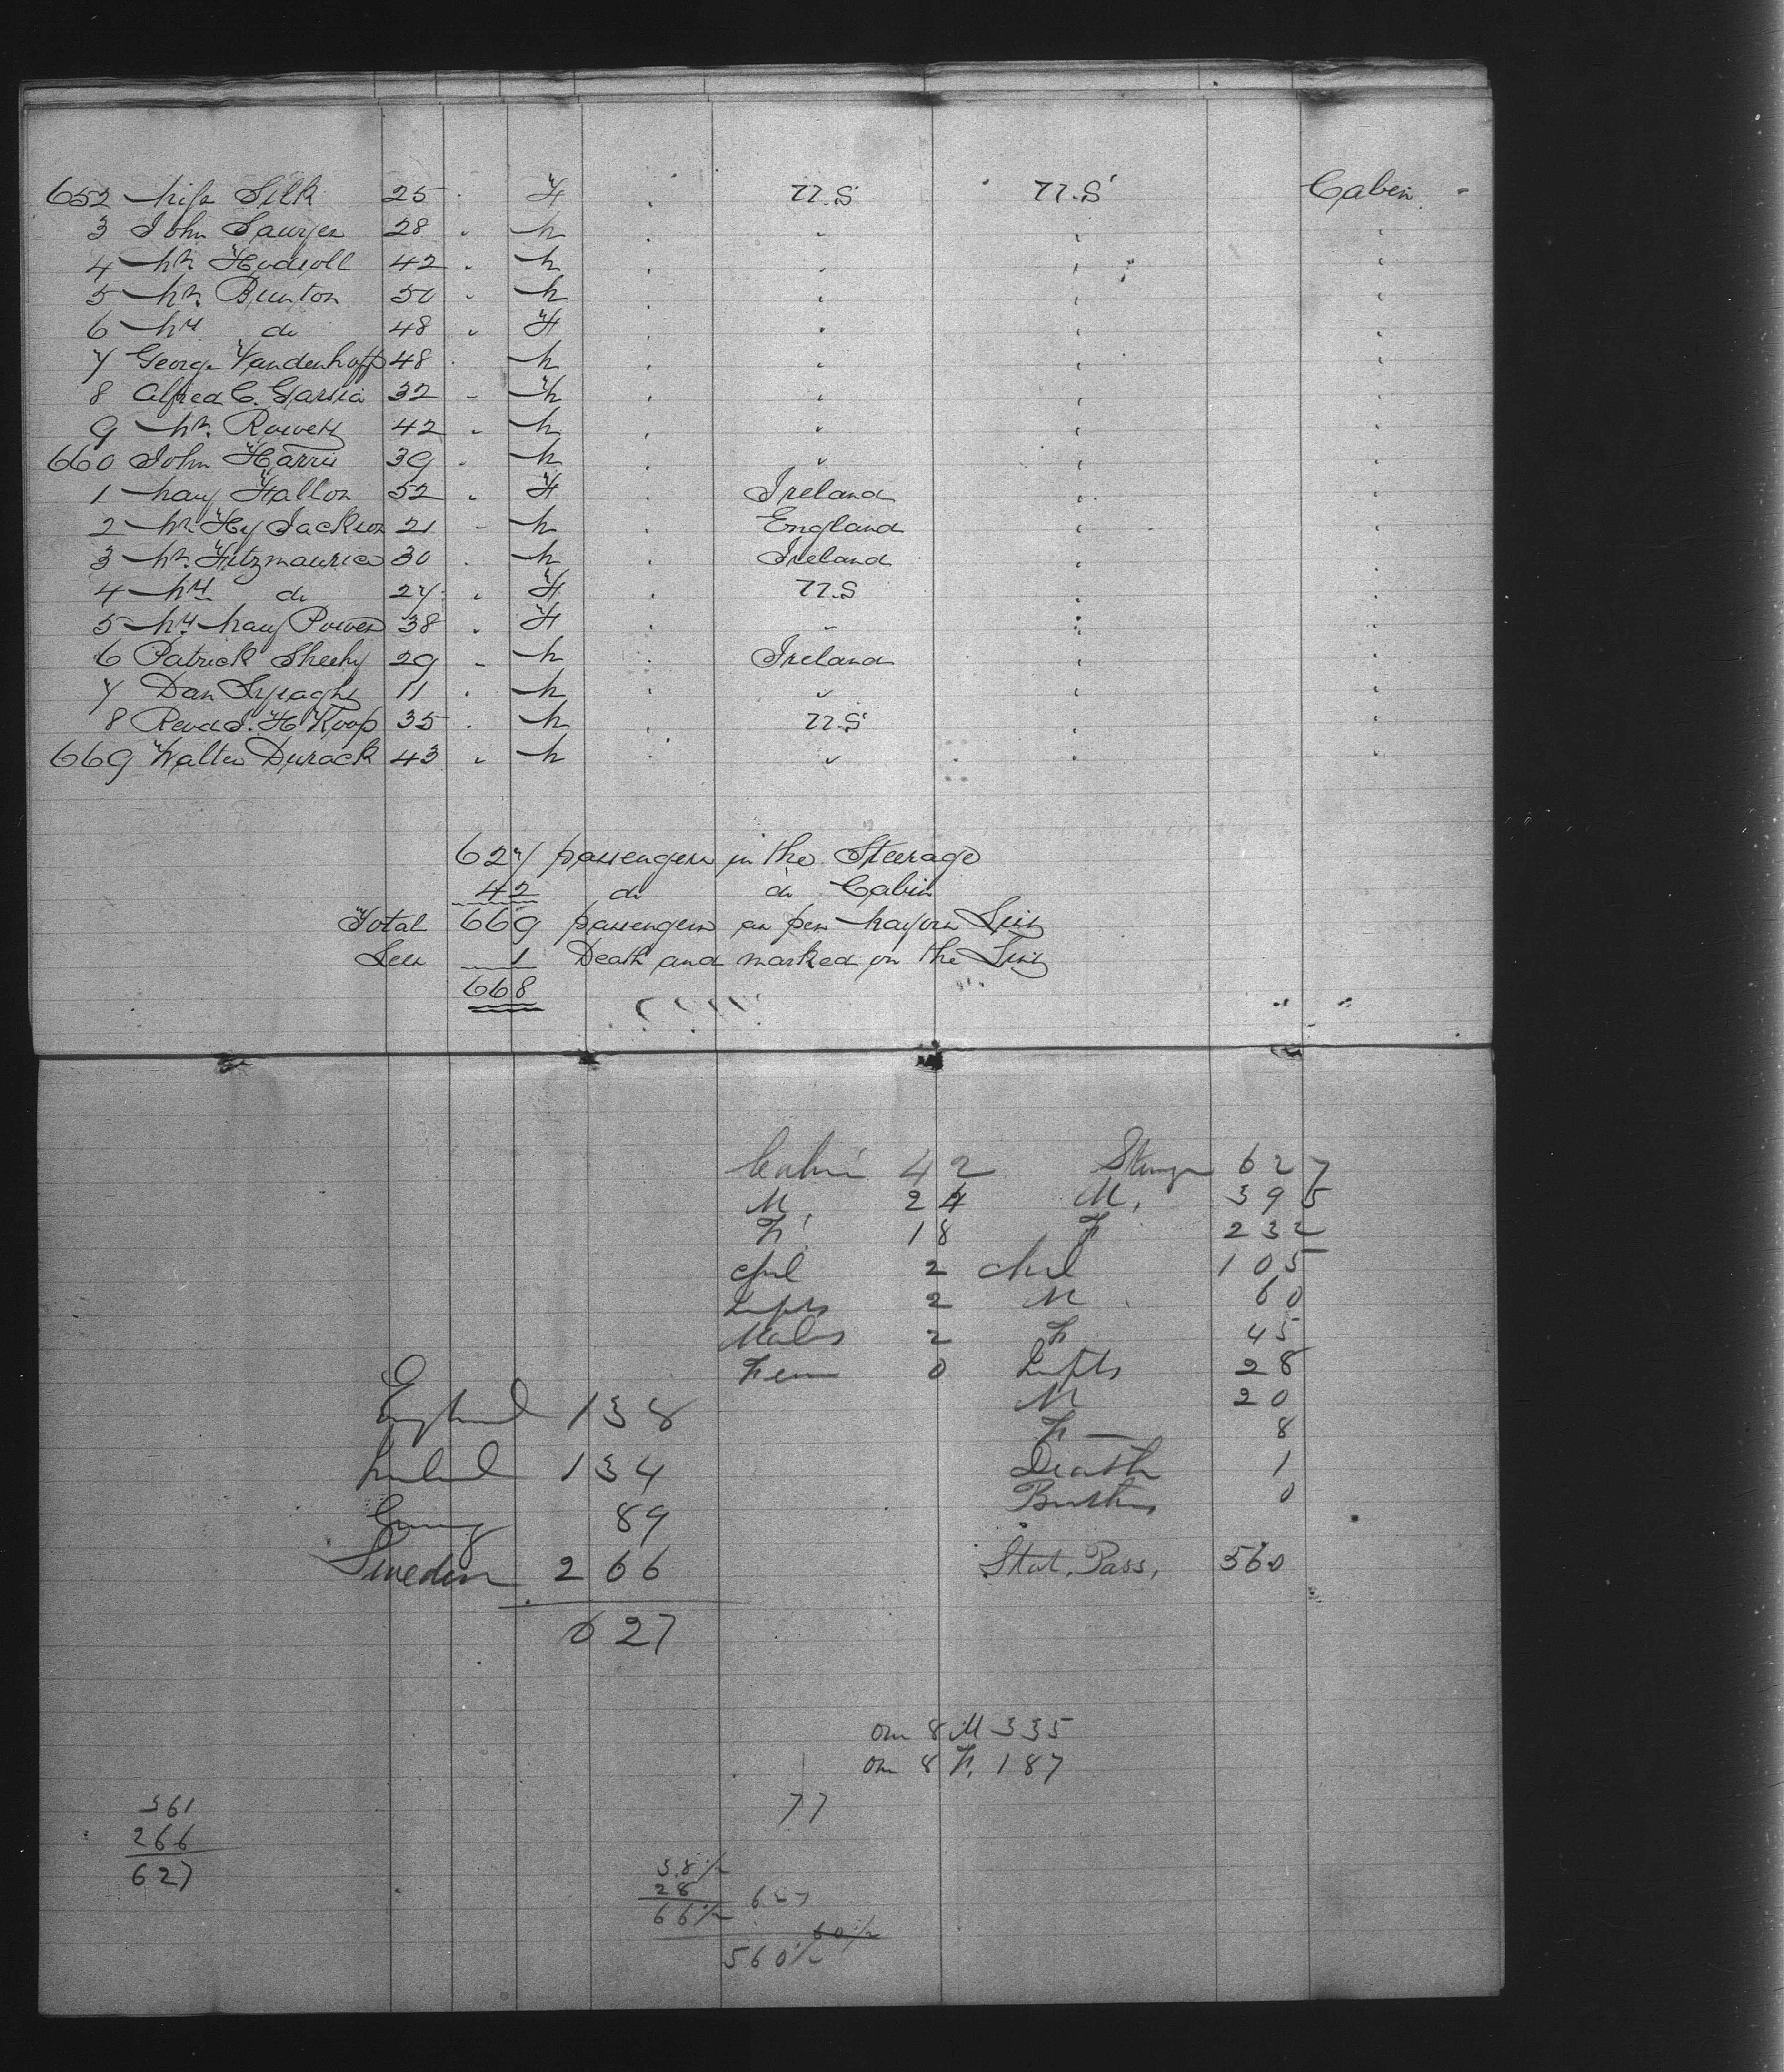 652 Miss Silk 25 F U.S U.S Cabin
3 John Sawyer 28 " M " " "
4 Mr. Hudsoll 42 " M " " "
5 Mr. Bunton 50 " M " " "
6 Mrs do 48 " F " " "
7 George Vandenhoff 48 " M " " "
8 Alfred C. Garsia 32 " M " " "
9 Mr. 42 " M " " "
660 John Harris 39 " M " " "
1 Mary Fallon 52 " F Ireland " "
2 Mr. Hy Jackson 21 " M England " "
3 Mr. Fitzmaurice 30 " M Ireland " "
4 Mrs do 27 " F U.S " "
5 Mrs Mary Power 38 " F " " "
6 Patrick Sheehy 29 " M Ireland " "
7 Dan 11 " M " " "
8 Revd J. H. Koop 35 " M U.S " "
669 Walter Durack 43 " M " " "
627 passengers in the Steerage
42 do do Cabin
Total 669 passengers as per Mayors List
Less 1 Death and marked on the List
668
Cabin 42 Steerage 627
M. 24 M. 395
F. 18 F 232
Chil 2 Chil 105
Infts 2 M 60
Males 2 F 45
Fem 0 Infts 28
M 20
F 8
Death 1
Births 0
Stat. Pass. 560
England 138
Ireland 134
Germy 89
Sweden 266
627
ovr 8 M 335
ovr 8 F. 187
77
361
266
627
38 1/2
28
66 1/2
627
60 1/2
560 1/2